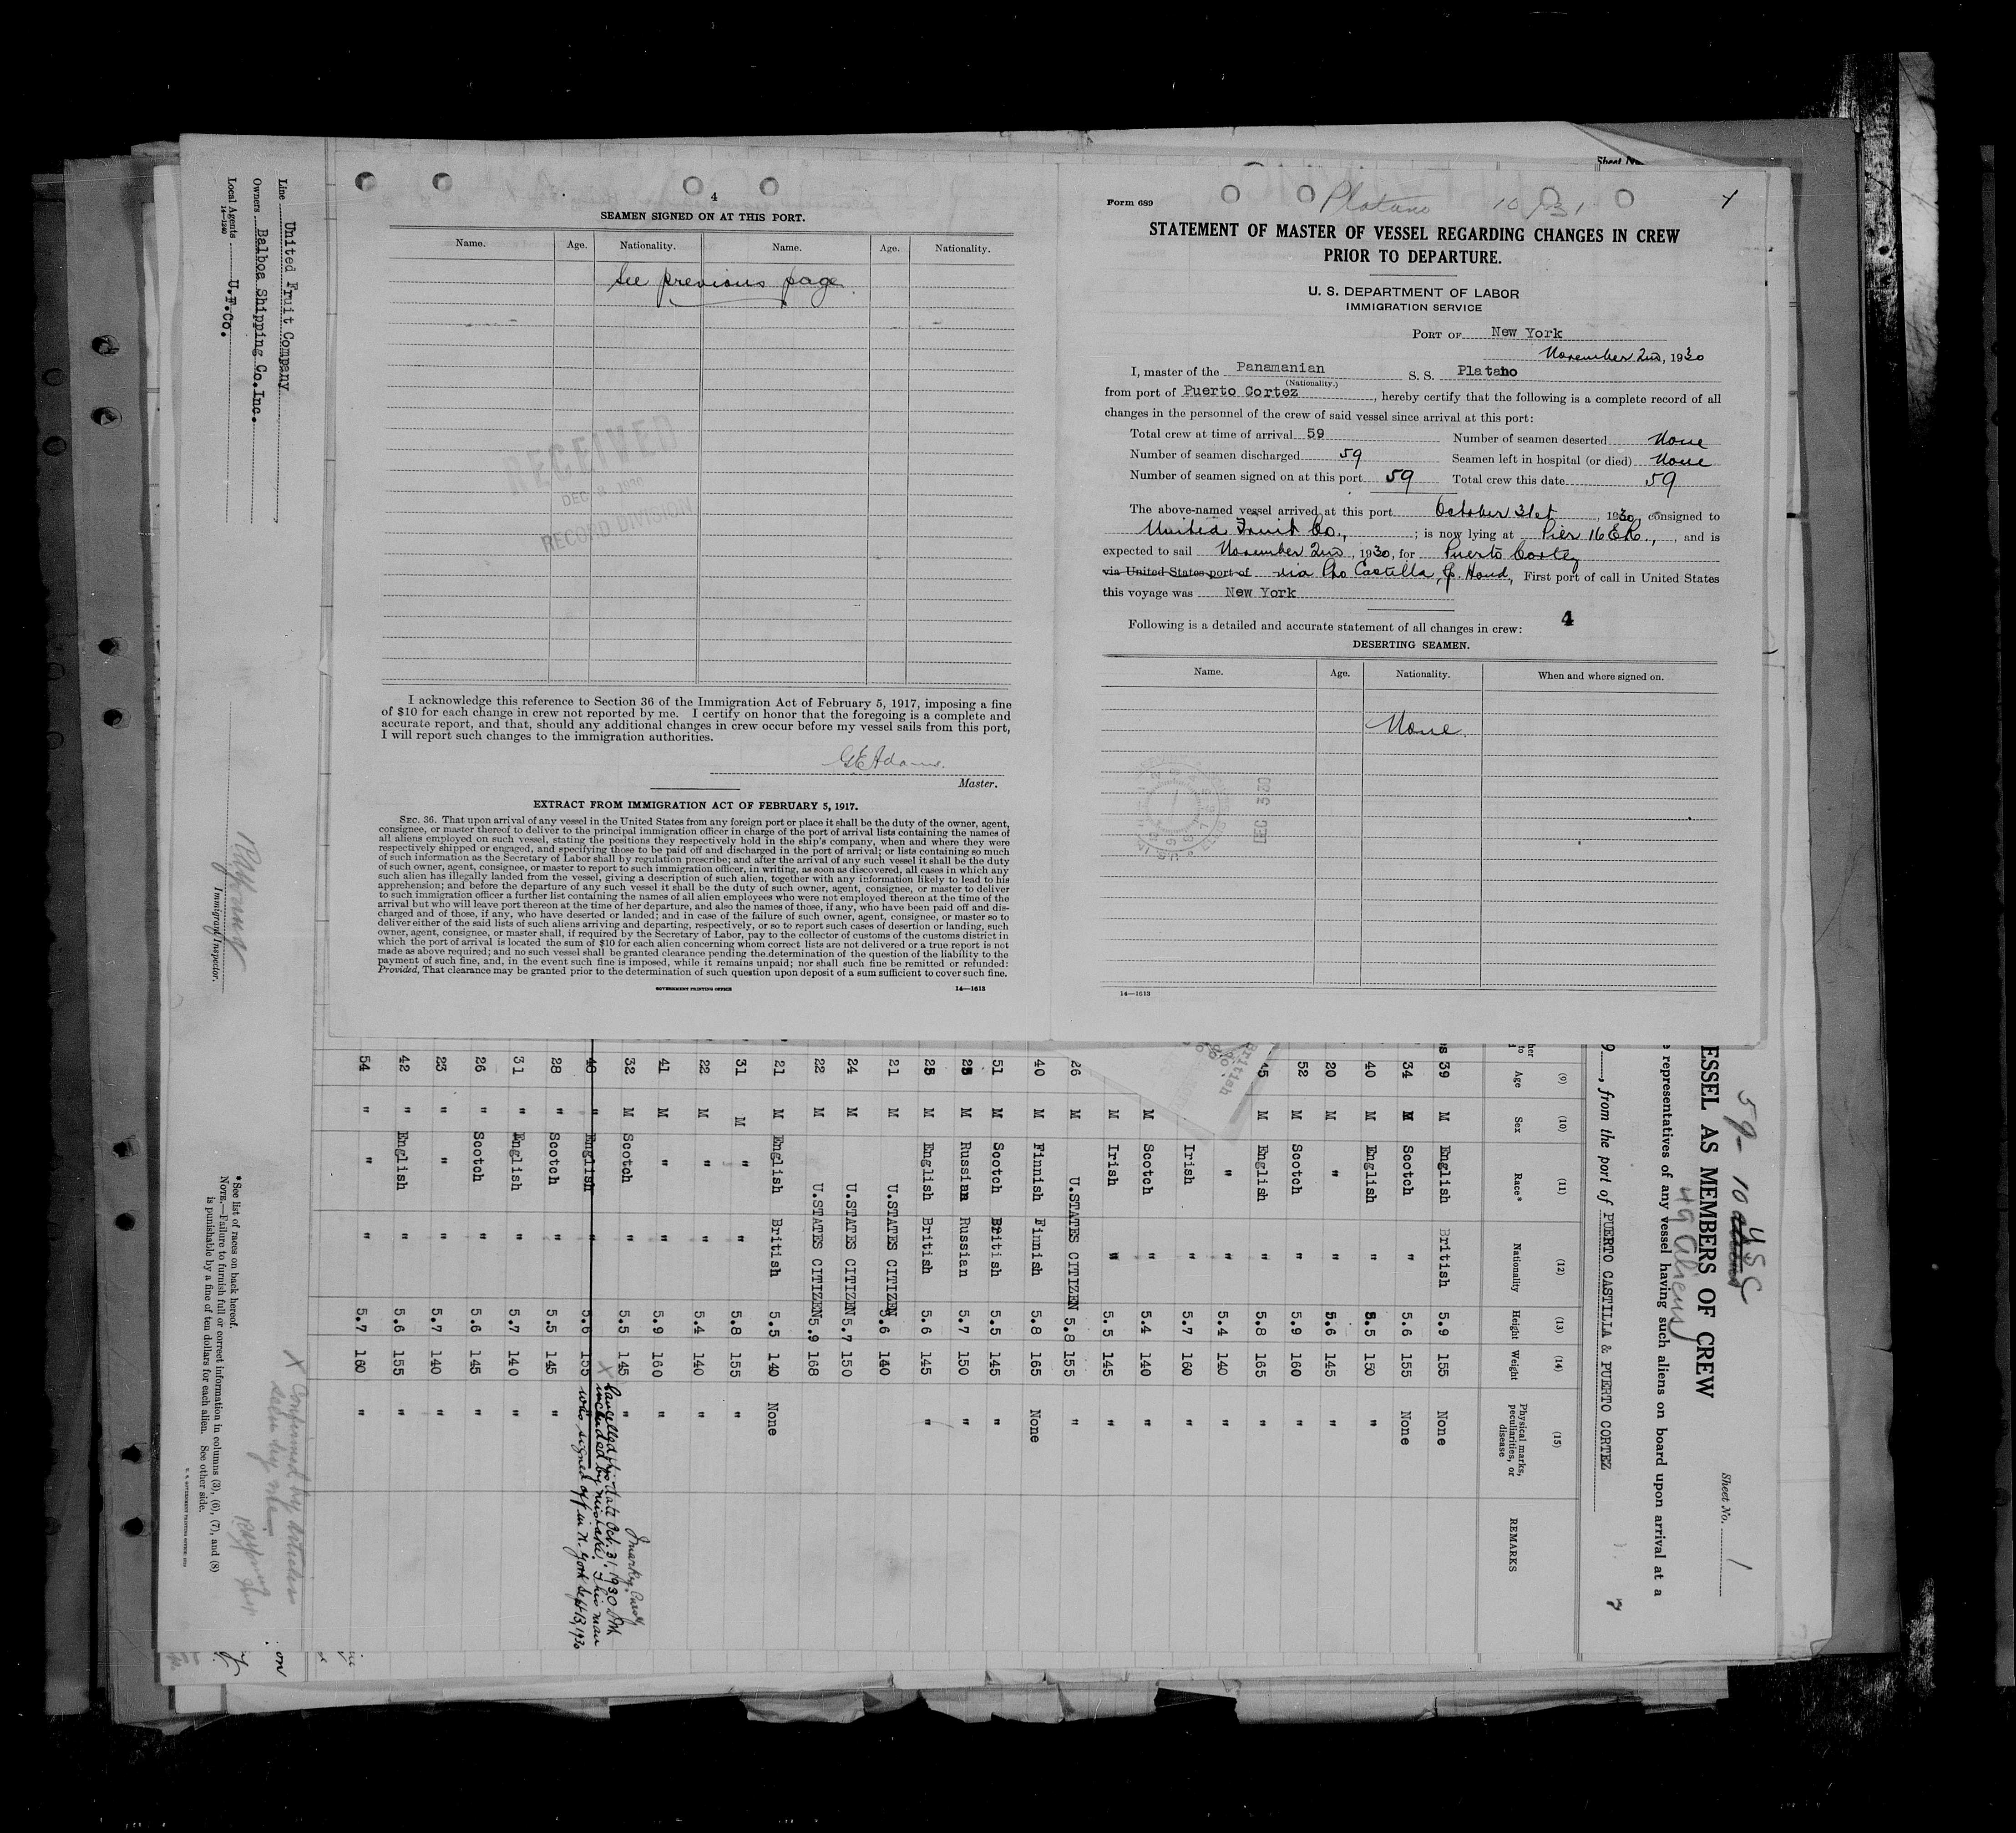 4
SEAMEN SIGNED ON AT THIS PORT.
Name. Age. Nationality. Name. Age. Nationality.
See previous page.
RECEIVED
DEC 3 1930
RECORD DIVISION
I acknowledge this reference to Section 36 of the Immigration Act of February 5, 1917, imposing a fine
of $10 for each change in crew not reported by me. I certify on honor that the foregoing is a complete and
accurate report, and that, should any additional changes in crew occur before my vessel sails from this port,
I will report such changes to the immigration authorities.
G E Adams.
Master.
EXTRACT FROM IMMIGRATION ACT OF FEBRUARY 5, 1917.
SEC. 36. That upon arrival of any vessel in the United States from any foreign port or place it shall be the duty of the owner, agent,
consignee, or master thereof to deliver to the principal immigration officer in charge of the port of arrival lists containing the names of
all aliens employed on such vessel, stating the positions they respectively hold in the ship's company, when and where they were
respectively shipped or engaged, and specifying those to be paid off and discharged in the port of arrival; or lists containing so much
of such information as the Secretary of Labor shall by regulation prescribe; and after the arrival of any such vessel it shall be the duty
of such owner, agent, consignee, or master to report to such immigration officer, in writing, as soon as discovered, all cases in which any
such alien has illegally landed from the vessel, giving a description of such alien, together with any information likely to lead to his
apprehension; and before the departure of any such vessel it shall be the duty of such owner, agent, consignee, or master to deliver
to such immigration officer a further list containing the names of all alien employees who were not employed thereon at the time of the
arrival but who will leave port thereon at the time of her departure, and also the names of those, if any, who have been paid off and dis-
charged and of those, if any, who have deserted or landed; and in case of the failure of such owner, agent, consignee, or master so to
deliver either of the said lists of such aliens arriving and departing, respectively, or so to report such cases of desertion or landing, such
owner, agent, consignee, or master shall, if required by the Secretary of Labor, pay to the collector of customs of the customs district in
which the port of arrival is located the sum of $10 for each alien concerning whom correct lists are not delivered or a true report is not
made as above required; and no such vessel shall be granted clearance pending the determination of the question of the liability to the
payment of such fine, and, in the event such fine is imposed, while it remains unpaid; nor shall such fine be remitted or refunded:
Provided, That clearance may be granted prior to the determination of such question upon deposit of a sum sufficient to cover such fine.
GOVERNMENT PRINTING OFFICE 14—1613
Form 689 Platano
STATEMENT OF MASTER OF VESSEL REGARDING CHANGES IN CREW
PRIOR TO DEPARTURE.
U. S. DEPARTMENT OF LABOR
IMMIGRATION SERVICE
PORT OF New York
November 2nd, 1930
I, master of the Panamanian S. S. Platano
(Nationality.)
from port of Puerto Cortez, hereby certify that the following is a complete record of all
changes in the personnel of the crew of said vessel since arrival at this port:
Total crew at time of arrival 59 Number of seamen deserted None
Number of seamen discharged 59 Seamen left in hospital (or died) None
Number of seamen signed on at this port 59 Total crew this date 59
The above-named vessel arrived at this port October 31st, 1930, consigned to
United Fruit Co., ; is now lying at Pier 16 E.R., , and is
expected to sail November 2nd, 1930, for Puerto Cortez
via United States port of via Pto Castilla, Hond, First port of call in United States
this voyage was New York
Following is a detailed and accurate statement of all changes in crew: 4
DESERTING SEAMEN.
Name. Age. Nationality. When and where signed on.
None.
DEC 3 30
14—1613
Line United Fruit Company
Owners Balboa Shipping Co.Inc.
Local Agents U.F.Co.
14—1240
Immigrant Inspector.
*See list of races on back hereof.
NOTE.—Failure to furnish full or correct information in columns (3), (6), (7), and (8)
is punishable by a fine of ten dollars for each alien. See other side.
Sheet No. 1
59 - 10 USC
49 Aliens
ESSEL AS MEMBERS OF CREW
representatives of any vessel having such aliens on board upon arrival at a
9, from the port of PUERTO CASTILLA & PUERTO CORTEZ
(9) (10) (11) (12) (13) (14) (15)
Age Sex Race* Nationality Height Weight Physical marks, peculiarities, or disease REMARKS
39 M English British 5.9 155 None
34 M Scotch " 5.6 155 None
40 M English " 5.5 150 "
20 M " " 5.6 145 "
52 M Scotch " 5.9 160 "
45 M English " 5.8 165 "
" " 5.4 140 "
Irish " 5.7 160 "
M Scotch " 5.4 140 "
M Irish " 5.5 145 "
26 M U.STATES CITIZEN 5.8 155 "
40 M Finnish Finnish 5.8 165 None
51 M Scotch British 5.5 145 "
25 M Russian Russian 5.7 150 "
25 M English British 5.6 145 "
21 M U.STATES CITIZEN 5.6 140
24 M U.STATES CITIZEN 5.7 150
22 M U.STATES CITIZEN 5.9 168
21 M English British 5.5 140 None
31 M " " 5.8 155 "
22 M " " 5.4 140 "
41 M " " 5.9 160 "
32 M Scotch " 5.5 145 "
40 " English " 5.6 155 "
X Cancelled this date Oct. 31. 1930
included by mistake. This man
who signed off in N. York Sept 13, 1930
28 " Scotch " 5.5 145 "
31 " English " 5.7 140 "
26 " Scotch " 5.6 145 "
23 " " " 5.7 140 "
42 " English " 5.6 155 "
54 " " " 5.7 160 "
X Confirmed by articles
seen by me